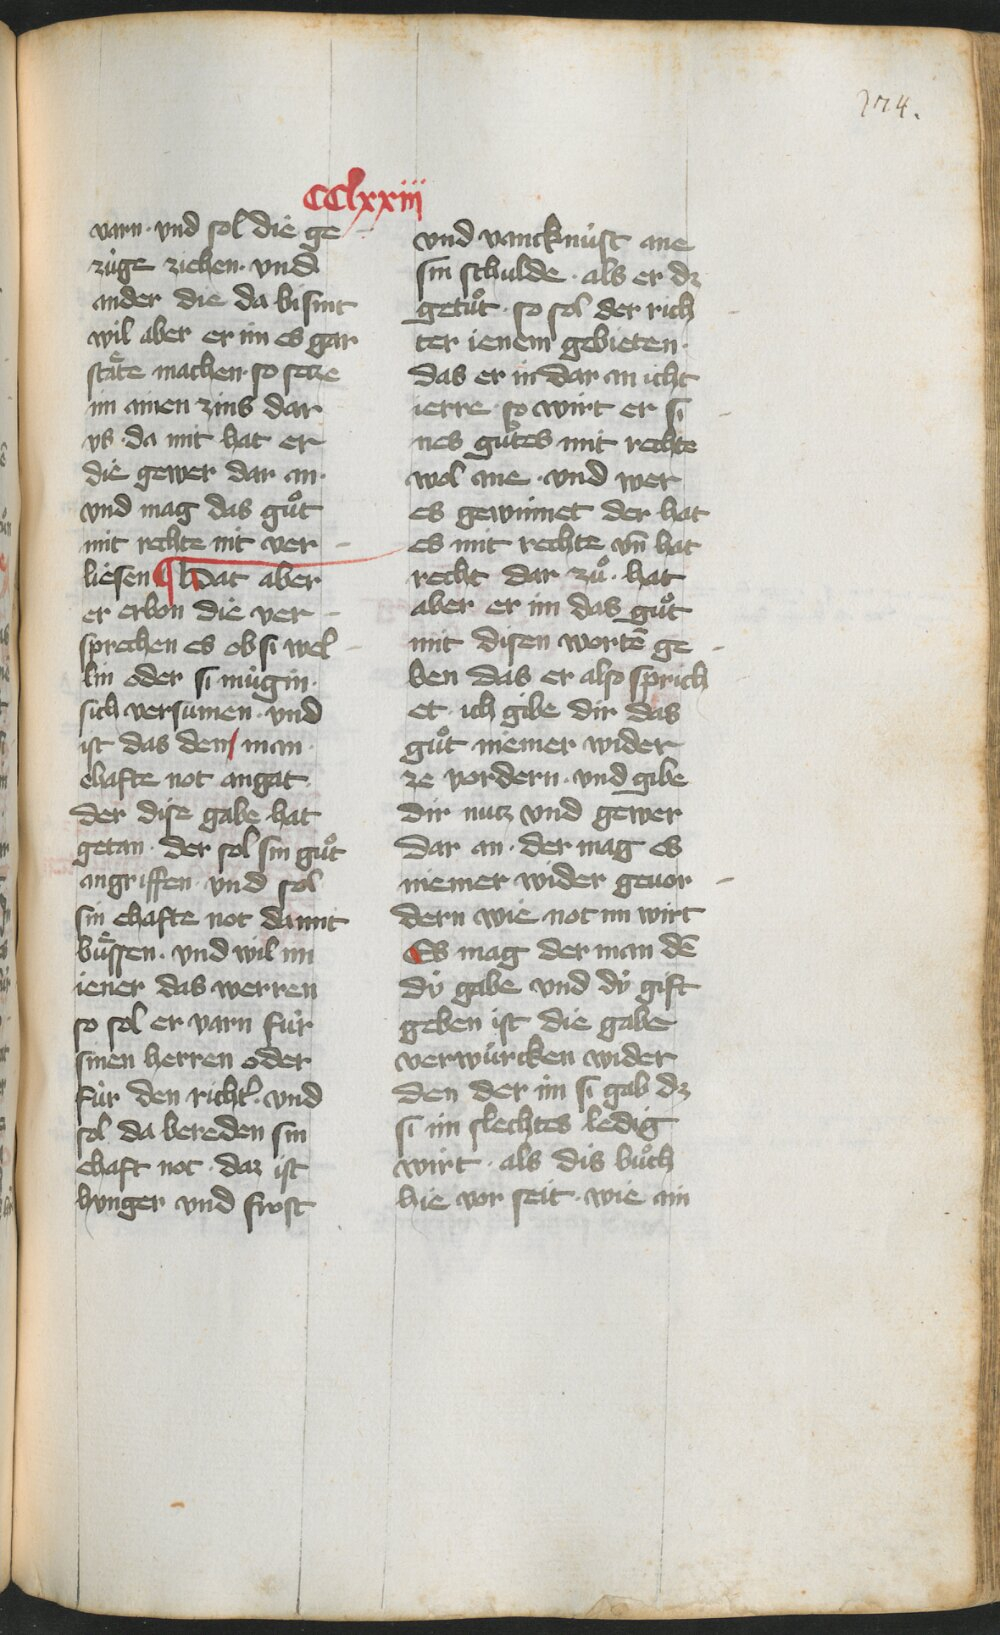 274.
CClxxiii
varn · vnd sol die ge -
zùge ziehen · vnd
ander die da bi sint
wil aber er im es gar
ståte machen · so setze
im ainen zins dar
vs · da mit hat er
die gewer dar an ·
vnd mag das gůt
mit rechte nit ver -
liesen ¶ Hat aber
er erbon die ver -
sprechen es ob si wel -
lin oder si mùgin ·
sich versumen · vnd
ist das den / man ·
ehafte not angat ·
der dise gabe hat
getan · der sol sin gůt
angriffen · vnd sol
sin ehafte not damit
bůssen · vnd wil im
iener das werren
so sol er varn fùr
sinen herren oder
fùr den richt̛ · vnd
sol da bereden sin
ehaft not · daz ist
hvnger vnd frost
vnd vancknùst ane
sin schulde · als er dz
getůt · so sol der rich -
ter ienem gebieten ·
das er in dar an icht
ierre · so wirt er si -
nes gůtes mit rechte
wol ane · vnd wer
es gewinnet der hat
es mit rechte vn̄ hat
recht dar zů · hat
aber er im das gůt
mit disen wortē ge -
ben das er also sprich
et · ich gibe dir das
gůt niemer wider
ze vordern · vnd gibe
dir nutz vnd gewer
dar an · der mag es
niemer wider gevor -
dern wie not im wirt
Es mag der man dē
dù gabe vnd dù gift
geben ist die gabe
verwùrcken wider
den der im si gab dz
si im slechtes ledig
wirt · als dis bůch
hie vor seit · wie ain